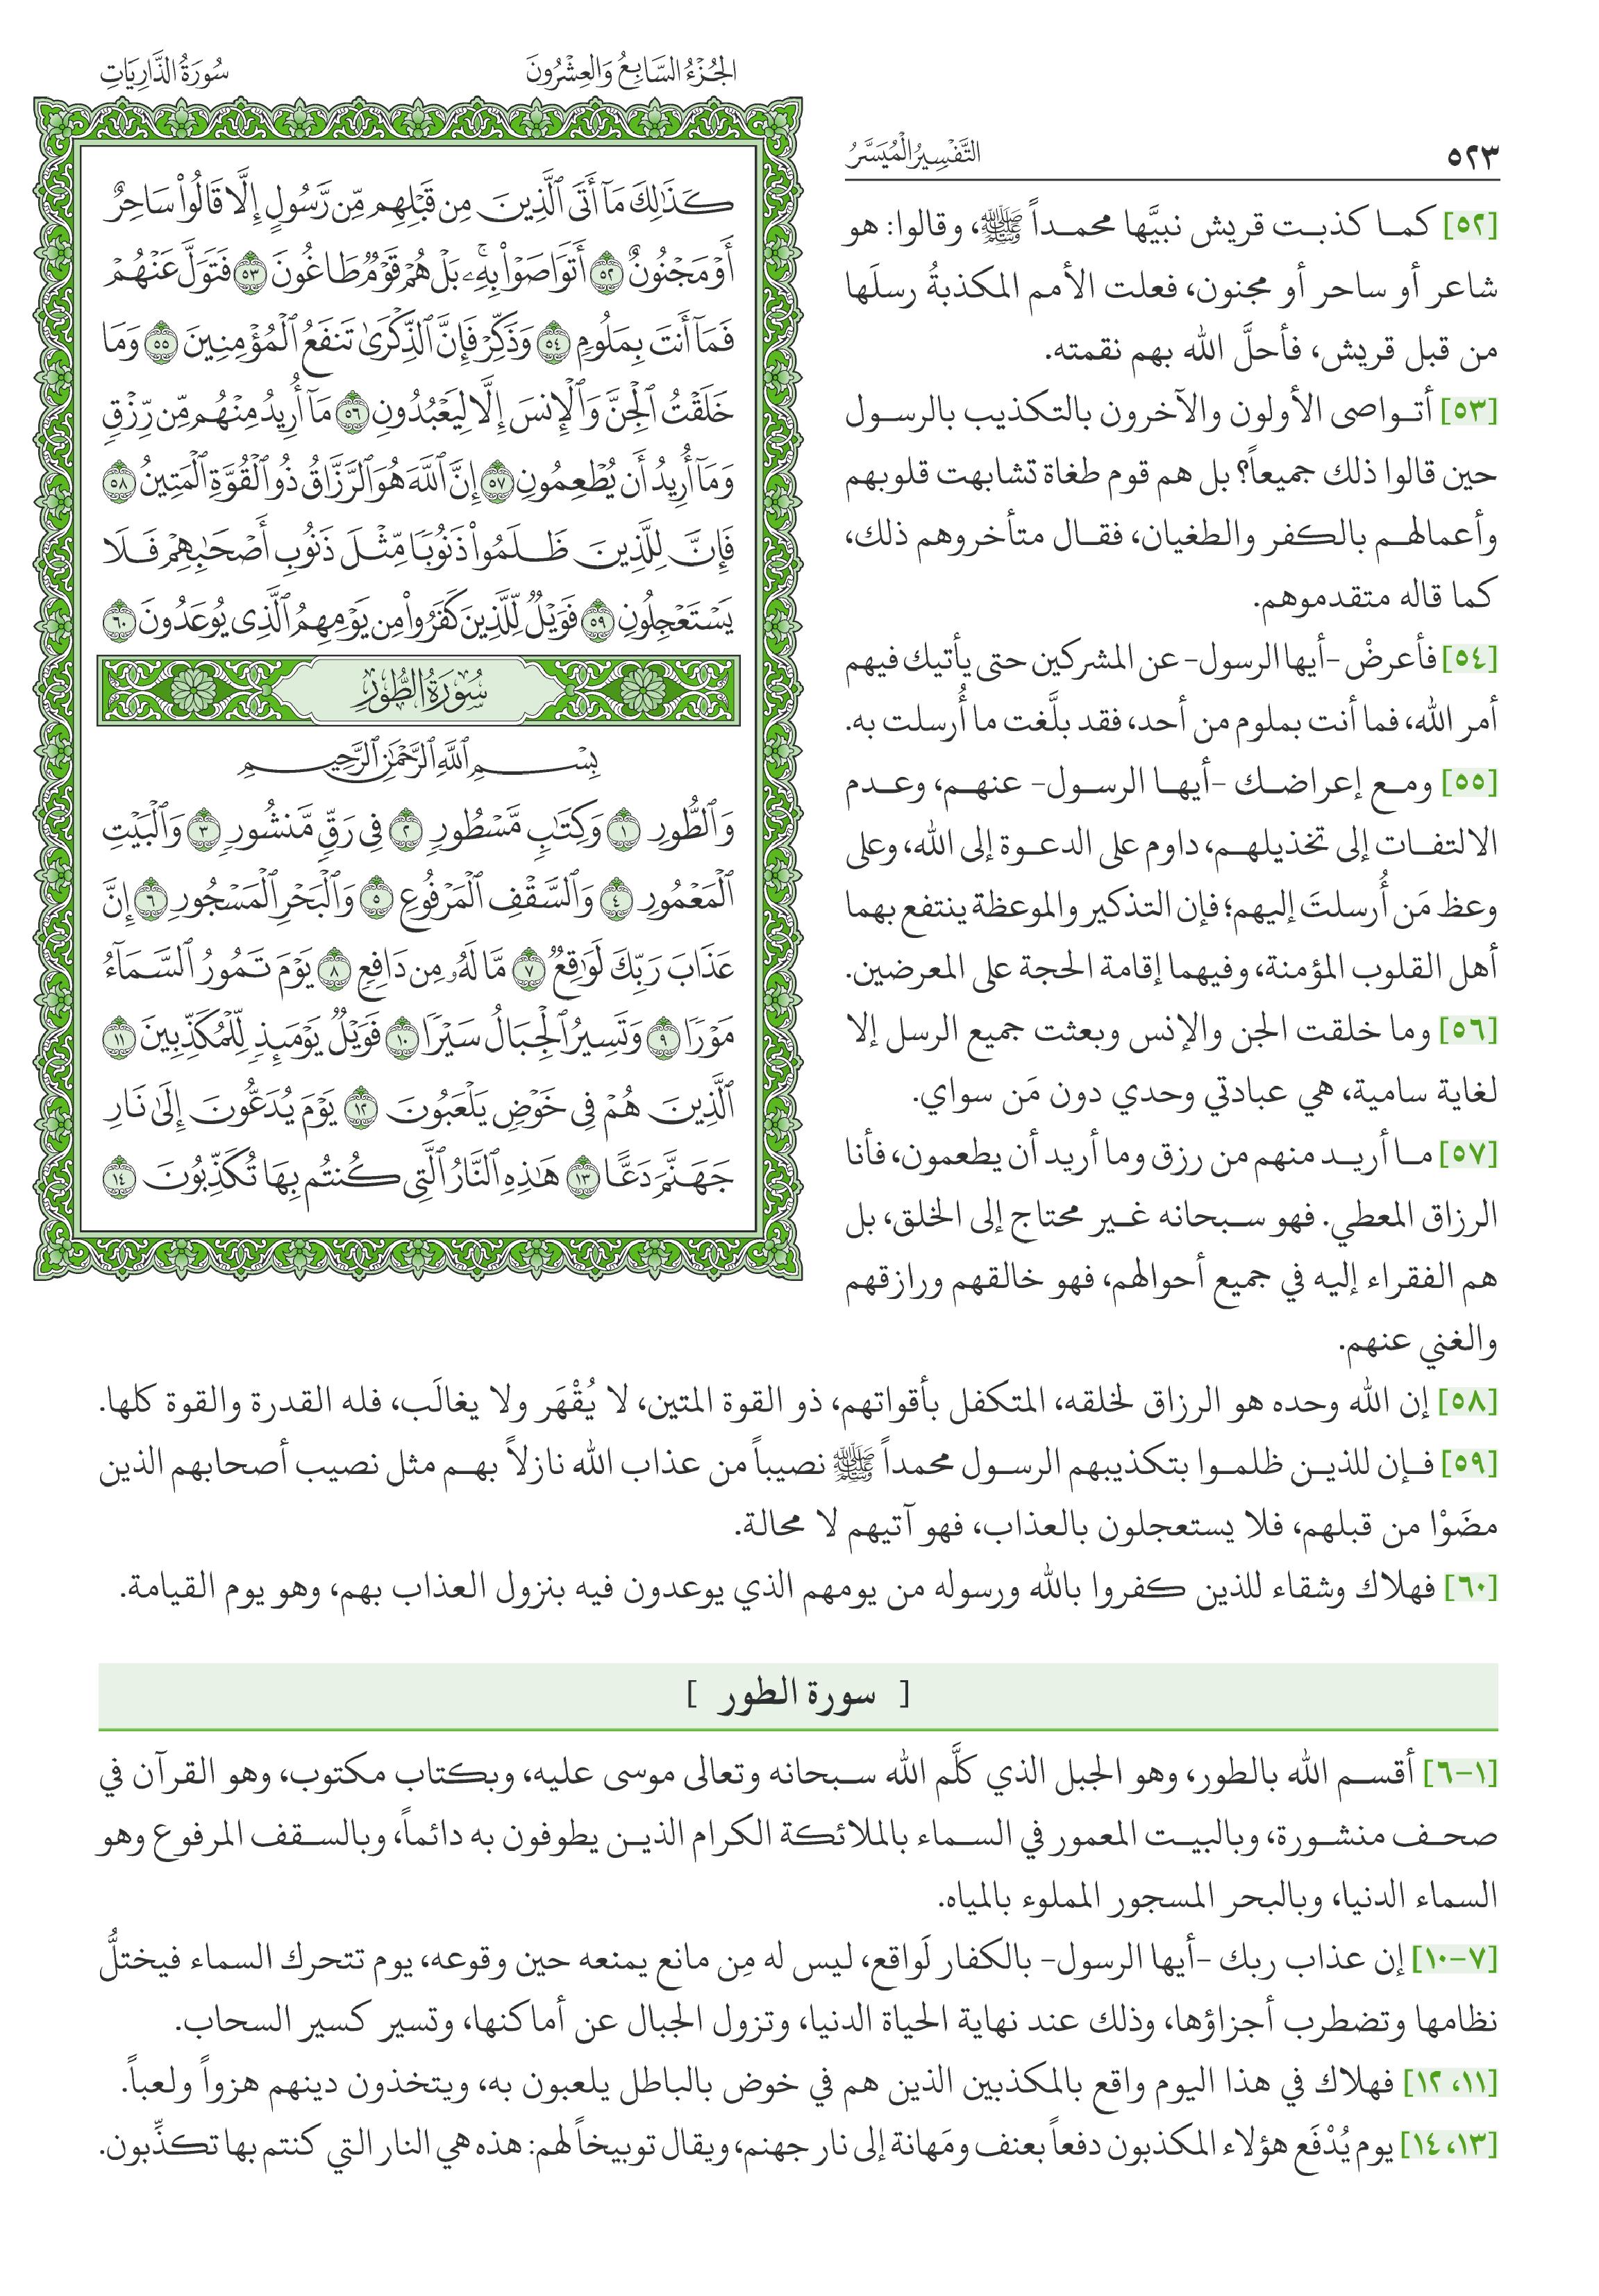 الجُزْءُ السَّابِعُ وَالعِشْرُونَ
سُورَةُ الذَّارِيَاتِ
كَذَٰلِكَ مَآ أَتَى ٱلَّذِينَ مِن قَبْلِهِم مِّن رَّسُولٍ إِلَّا قَالُوا۟ سَاحِرٌ
أَوْ مَجْنُونٌ ٥٢ أَتَوَاصَوْا۟ بِهِۦۚ بَلْ هُمْ قَوْمٌ طَاغُونَ ٥٣ فَتَوَلَّ عَنْهُمْ
فَمَآ أَنتَ بِمَلُومٍ ٥٤ وَذَكِّرْ فَإِنَّ ٱلذِّكْرَىٰ تَنفَعُ ٱلْمُؤْمِنِينَ ٥٥ وَمَا
خَلَقْتُ ٱلْجِنَّ وَٱلْإِنسَ إِلَّا لِيَعْبُدُونِ ٥٦ مَآ أُرِيدُ مِنْهُم مِّن رِّزْقٍ
وَمَآ أُرِيدُ أَن يُطْعِمُونِ ٥٧ إِنَّ ٱللَّهَ هُوَ ٱلرَّزَّاقُ ذُو ٱلْقُوَّةِ ٱلْمَتِينُ ٥٨
فَإِنَّ لِلَّذِينَ ظَلَمُوا۟ ذَنُوبًا مِّثْلَ ذَنُوبِ أَصْحَٰبِهِمْ فَلَا
يَسْتَعْجِلُونِ ٥٩ فَوَيْلٌ لِّلَّذِينَ كَفَرُوا۟ مِن يَوْمِهِمُ ٱلَّذِى يُوعَدُونَ ٦٠
سُورَةُ الطُّورِ
بِسْمِ ٱللَّهِ ٱلرَّحْمَٰنِ ٱلرَّحِيمِ
وَٱلطُّورِ ١ وَكِتَٰبٍ مَّسْطُورٍ ٢ فِى رَقٍّ مَّنشُورٍ ٣ وَٱلْبَيْتِ
ٱلْمَعْمُورِ ٤ وَٱلسَّقْفِ ٱلْمَرْفُوعِ ٥ وَٱلْبَحْرِ ٱلْمَسْجُورِ ٦ إِنَّ
عَذَابَ رَبِّكَ لَوَٰقِعٌ ٧ مَّا لَهُۥ مِن دَافِعٍ ٨ يَوْمَ تَمُورُ ٱلسَّمَآءُ
مَوْرًا ٩ وَتَسِيرُ ٱلْجِبَالُ سَيْرًا ١٠ فَوَيْلٌ يَوْمَئِذٍ لِّلْمُكَذِّبِينَ ١١
ٱلَّذِينَ هُمْ فِى خَوْضٍ يَلْعَبُونَ ١٢ يَوْمَ يُدَعُّونَ إِلَىٰ نَارِ
جَهَنَّمَ دَعًّا ١٣ هَٰذِهِ ٱلنَّارُ ٱلَّتِى كُنتُم بِهَا تُكَذِّبُونَ ١٤
٥٢٣
التَّفْسِيرُ الْمُيَسَّرُ
[٥٢] كما كذبت قريش نبيَّها محمداً ﷺ، وقالوا: هو
شاعر أو ساحر أو مجنون، فعلت الأمم المكذبةُ رسلَها
من قبل قريش، فأحلَّ الله بهم نقمته.
[٥٣] أتواصى الأولون والآخرون بالتكذيب بالرسول
حين قالوا ذلك جميعاً؟ بل هم قوم طغاة تشابهت قلوبهم
وأعمالهم بالكفر والطغيان، فقال متأخروهم ذلك،
كما قاله متقدموهم.
[٥٤] فأعرضْ -أيها الرسول- عن المشركين حتى يأتيك فيهم
أمر الله، فما أنت بملوم من أحد، فقد بلَّغت ما أُرسلت به.
[٥٥] ومع إعراضك -أيها الرسول- عنهم، وعدم
الالتفات إلى تخذيلهم، داوم على الدعوة إلى الله، وعلى
وعظ مَن أُرسلتَ إليهم؛ فإن التذكير والموعظة ينتفع بهما
أهل القلوب المؤمنة، وفيهما إقامة الحجة على المعرضين.
[٥٦] وما خلقت الجن والإنس وبعثت جميع الرسل إلا
لغاية سامية، هي عبادتي وحدي دون مَن سواي.
[٥٧] ما أريد منهم من رزق وما أريد أن يطعمون، فأنا
الرزاق المعطي. فهو سبحانه غير محتاج إلى الخلق، بل
هم الفقراء إليه في جميع أحوالهم، فهو خالقهم ورازقهم
والغني عنهم.
[٥٨] إن الله وحده هو الرزاق لخلقه، المتكفل بأقواتهم، ذو القوة المتين، لا يُقْهَر ولا يغالَب، فله القدرة والقوة كلها.
[٥٩] فإن للذين ظلموا بتكذيبهم الرسول محمداً ﷺ نصيباً من عذاب الله نازلاً بهم مثل نصيب أصحابهم الذين
مضَوْا من قبلهم، فلا يستعجلون بالعذاب، فهو آتيهم لا محالة.
[٦٠] فهلاك وشقاء للذين كفروا بالله ورسوله من يومهم الذي يوعدون فيه بنزول العذاب بهم، وهو يوم القيامة.
[ سورة الطور ]
[١-٦] أقسم الله بالطور، وهو الجبل الذي كلَّم الله سبحانه وتعالى موسى عليه، وبكتاب مكتوب، وهو القرآن في
صحف منشورة، وبالبيت المعمور في السماء بالملائكة الكرام الذين يطوفون به دائماً، وبالسقف المرفوع وهو
السماء الدنيا، وبالبحر المسجور المملوء بالمياه.
[٧-١٠] إن عذاب ربك -أيها الرسول- بالكفار لَواقع، ليس له مِن مانع يمنعه حين وقوعه، يوم تتحرك السماء فيختلُّ
نظامها وتضطرب أجزاؤها، وذلك عند نهاية الحياة الدنيا، وتزول الجبال عن أماكنها، وتسير كسير السحاب.
[١١، ١٢] فهلاك في هذا اليوم واقع بالمكذبين الذين هم في خوض بالباطل يلعبون به، ويتخذون دينهم هزواً ولعباً.
[١٣، ١٤] يوم يُدْفَع هؤلاء المكذبون دفعاً بعنف ومَهانة إلى نار جهنم، ويقال توبيخاً لهم: هذه هي النار التي كنتم بها تكذِّبون.